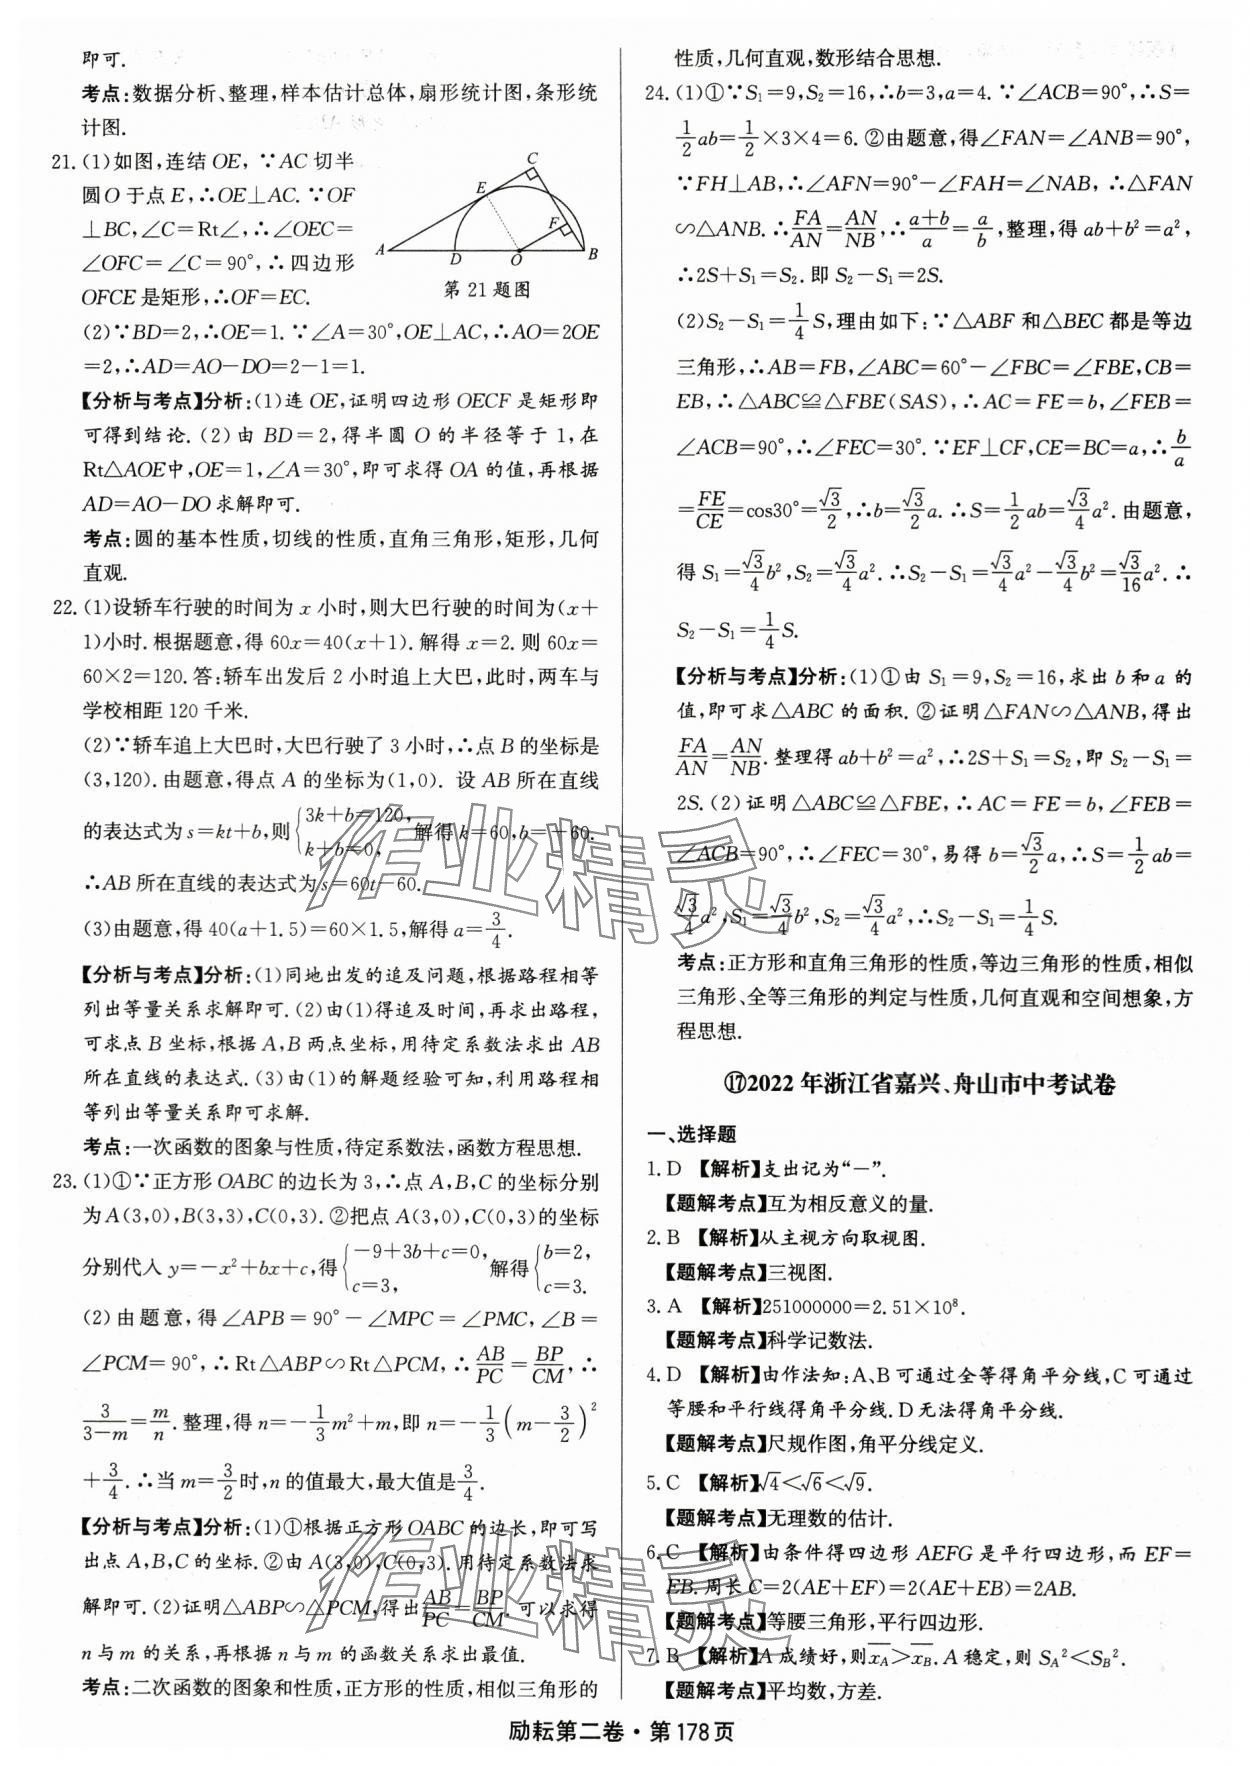 即可.
考点:数据分析、整理,样本估计总体,扇形统计图,条形统
计图.
21.(1)如图,连结OE,∵AC切半
圆O于点E,∴OE⊥AC.∵OF
⊥BC,∠C=Rt∠,∴∠OEC=
∠OFC=∠C=90°,∴四边形
OFCE是矩形,∴OF=EC.
C
E
F
A
D
O
B
第21题图
(2)∵BD=2,∴OE=1.∵∠A=30°,OE⊥AC,∴AO=2OE
=2,∴AD=AO-DO=2-1=1.
【分析与考点】分析:(1)连OE,证明四边形OECF是矩形即
可得到结论.(2)由BD=2,得半圆O的半径等于1,在
Rt△AOE中,OE=1,∠A=30°,即可求得OA的值,再根据
AD=AO-DO求解即可.
考点:圆的基本性质,切线的性质,直角三角形,矩形,几何
直观.
22.(1)设轿车行驶的时间为x小时,则大巴行驶的时间为(x+
1)小时.根据题意,得60x=40(x+1).解得x=2.则60x=
60×2=120.答:轿车出发后2小时追上大巴,此时,两车与
学校相距120千米.
(2)∵轿车追上大巴时,大巴行驶了3小时,∴点B的坐标是
(3,120).由题意,得点A的坐标为(1,0).设AB所在直线
的表达式为s=kt+b,则{3k+b=120, k+b=0,解得k=60,b=-60.
∴AB所在直线的表达式为s=60t-60.
(3)由题意,得40(a+1.5)=60×1.5,解得a=3/4.
【分析与考点】分析:(1)同地出发的追及问题,根据路程相等
列出等量关系求解即可.(2)由(1)得追及时间,再求出路程,
可求点B坐标,根据A,B两点坐标,用待定系数法求出AB
所在直线的表达式.(3)由(1)的解题经验可知,利用路程相
等列出等量关系即可求解.
考点:一次函数的图象与性质,待定系数法,函数方程思想.
23.(1)①∵正方形OABC的边长为3,∴点A,B,C的坐标分别
为A(3,0),B(3,3),C(0,3).②把点A(3,0),C(0,3)的坐标
分别代入y=-x²+bx+c,得{-9+3b+c=0, c=3,解得{b=2, c=3.
(2)由题意,得∠APB=90°-∠MPC=∠PMC,∠B=
∠PCM=90°,∴Rt△ABP∽Rt△PCM,∴AB/PC=BP/CM,∴
3/(3-m)=m/n.整理,得n=-1/3m²+m,即n=-1/3(m-3/2)²
+3/4.∴当m=3/2时,n的值最大,最大值是3/4.
【分析与考点】分析:(1)①根据正方形OABC的边长,即可写
出点A,B,C的坐标.②由A(3,0),C(0,3).用待定系数法求
解即可.(2)证明△ABP∽△PCM,得出AB/PC=BP/CM.可以求得
n与m的关系,再根据n与m的函数关系求出最值.
考点:二次函数的图象和性质,正方形的性质,相似三角形的
性质,几何直观,数形结合思想.
24.(1)①∵S₁=9,S₂=16,∴b=3,a=4.∵∠ACB=90°,∴S=
1/2ab=1/2×3×4=6.②由题意,得∠FAN=∠ANB=90°,
∵FH⊥AB,∴∠AFN=90°-∠FAH=∠NAB,∴△FAN
∽△ANB.∴FA/AN=AN/NB,∴(a+b)/a=a/b,整理,得ab+b²=a²,
∴2S+S₁=S₂.即S₂-S₁=2S.
(2)S₂-S₁=1/4S,理由如下:∵△ABF和△BEC都是等边
三角形,∴AB=FB,∠ABC=60°-∠FBC=∠FBE,CB=
EB,∴△ABC≌△FBE(SAS),∴AC=FE=b,∠FEB=
∠ACB=90°,∴∠FEC=30°.∵EF⊥CF,CE=BC=a,∴b/a
=FE/CE=cos30°=√3/2,∴b=√3/2a.∴S=1/2ab=√3/4a².由题意,
得S₁=√3/4b²,S₂=√3/4a².∴S₂-S₁=√3/4a²-√3/4b²=√3/16a².∴
S₂-S₁=1/4S.
【分析与考点】分析:(1)①由S₁=9,S₂=16,求出b和a的
值,即可求△ABC的面积.②证明△FAN∽△ANB,得出
FA/AN=AN/NB.整理得ab+b²=a²,∴2S+S₁=S₂,即S₂-S₁=
2S.(2)证明△ABC≌△FBE,∴AC=FE=b,∠FEB=
∠ACB=90°,∴∠FEC=30°,易得b=√3/2a,∴S=1/2ab=
√3/4a²,S₁=√3/4b²,S₂=√3/4a²,∴S₂-S₁=1/4S.
考点:正方形和直角三角形的性质,等边三角形的性质,相似
三角形、全等三角形的判定与性质,几何直观和空间想象,方
程思想.
⑰2022年浙江省嘉兴、舟山市中考试卷
一、选择题
1.D 【解析】支出记为“-”.
【题解考点】互为相反意义的量.
2.B 【解析】从主视方向取视图.
【题解考点】三视图.
3.A 【解析】251000000=2.51×10⁸.
【题解考点】科学记数法.
4.D 【解析】由作法知:A、B可通过全等得角平分线,C可通过
等腰和平行线得角平分线.D无法得角平分线.
【题解考点】尺规作图,角平分线定义.
5.C 【解析】√4<√6<√9.
【题解考点】无理数的估计.
6.C 【解析】由条件得四边形AEFG是平行四边形,而EF=
EB.周长C=2(AE+EF)=2(AE+EB)=2AB.
【题解考点】等腰三角形,平行四边形.
7.B 【解析】A成绩好,则x̅_A>x̅_B.A稳定,则S_A²<S_B².
【题解考点】平均数,方差.
励耘第二卷·第178页
作业精灵
作业精灵